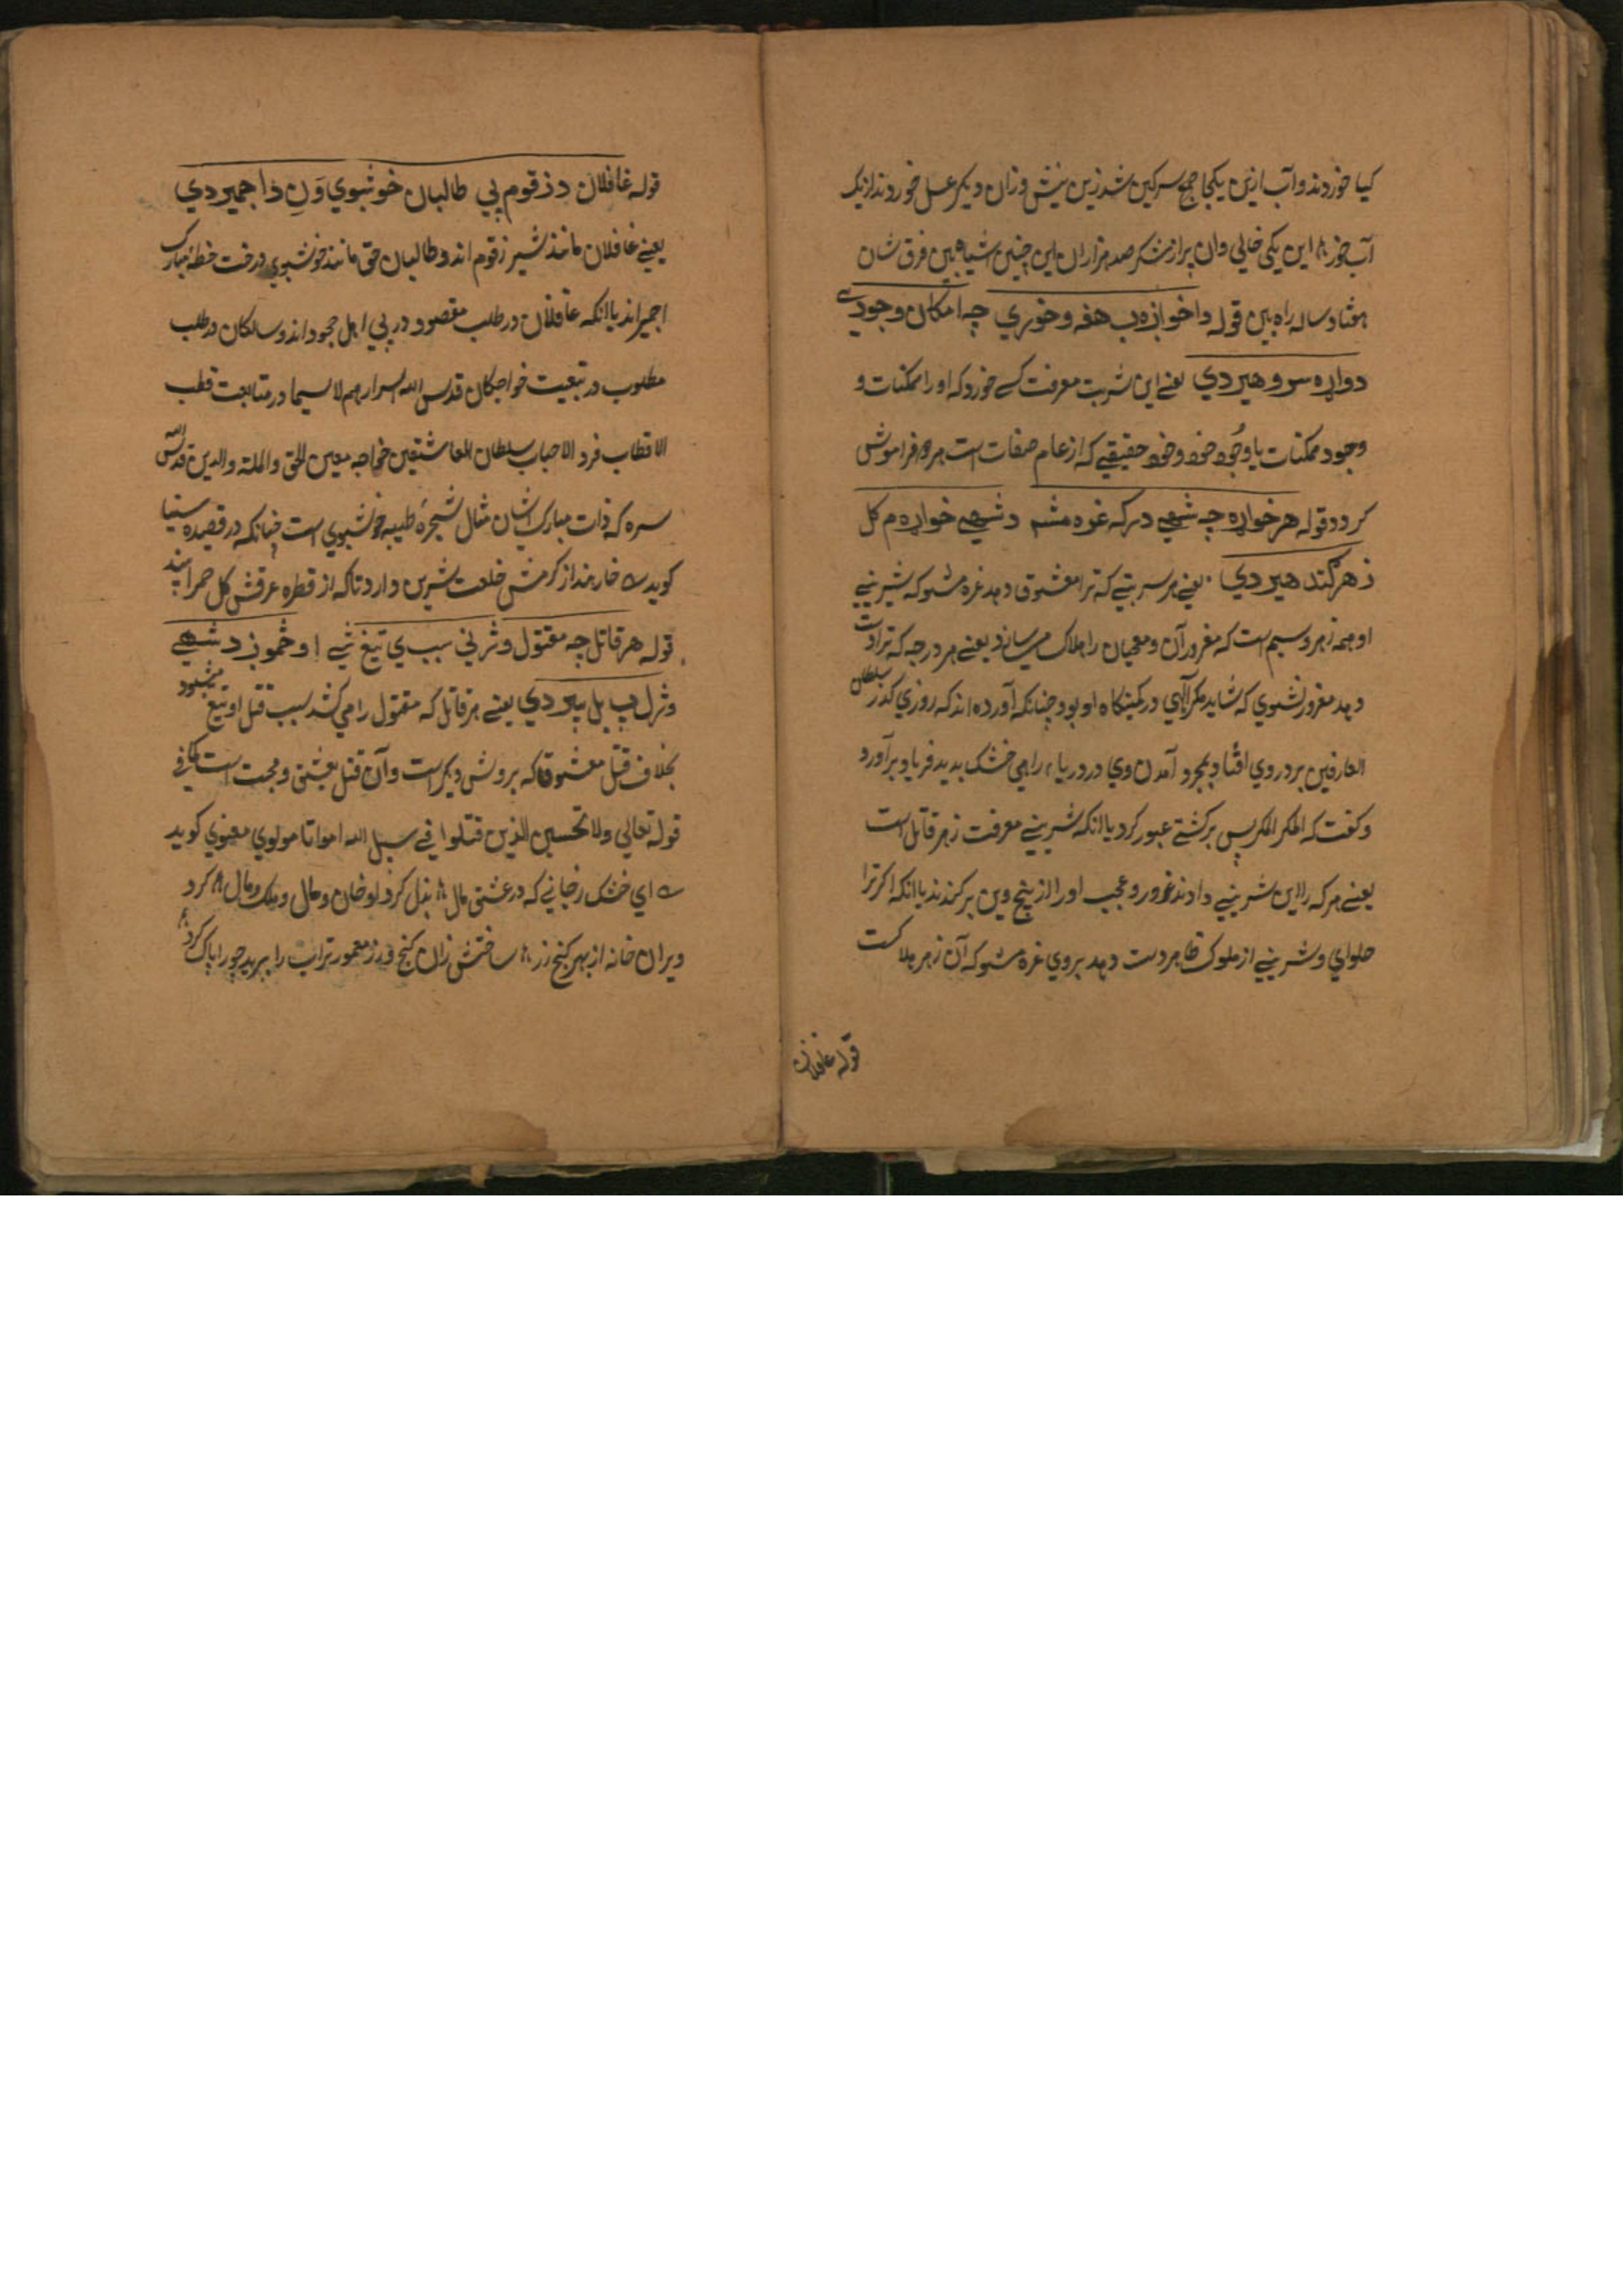 کیا خوردند و آب ازین یکجا جمع سرکین شد زین نیش وزان دیکر عسل خوردند از یک
آب خور ۸ این یکی خالی وان پر از شکر صد هزاران این چنین اشیا بین فرق شان
هفتاد ساله راه بین قوله دا خواږه به هغه وخوري چه امکان وجود یې
دواړه سر و هیر دي یعنے این شربت معرفت کسے خورد که او را ممکنات و
وجود ممکنات یا وجود خود و خود حقیقے که از عام صفات است هر دو فراموش
کردد قوله هر خواږه چه شهي درکه غره مشه د شهي خواږه م کل
زهر کند هیر دي یعنے هر شربتے که ترا معشوق دهد غره مشو که شیرینے
او همه زهر و سم است که مغرور آن و معجبان را هلاک میسازد یعنے هر درجه که ترا دست
دهد مغرور نشوي که شاید مکر آلهي در کمینکاه او بود چنانکه آورده اند که روزي کذر سلطان
العارفین بر دروي افتاد بمجرد آمدن وي در دریا راهي خشک پدید فریاد برآورد
و کفت که المکر المکر پس بر کشتے عبور کرد یا انکه شیرینے معرفت زهر قاتل است
یعنے هر که را این شیرینے دادند غرور و عجب او را از بیخ و بن برکندند یا انکه اکر ترا
حلواي و شیرینے از ملوک ظاهر دست دهد بروي غره مشو که آن زهر هلاکت
قوله غافلان
قوله غافلان د زقوم پي طالبان خوشبوي ون د اجمیر دي
یعنے غافلان مانند شیر زقوم اند و طالبان حق مانند خوشبوي درخت خطهٔ مبارک
اجمیر اند یا انکه غافلان در طلب مقصود در پي اهل جحود اند و سالکان در طلب
مطلوب در تبعیت خواجکان قدس الله اسرارهم لا سیما در متابعت قطب
الاقطاب فرد الاحباب سلطان العاشقین خواجه معین الحق والملة والدین قدس الله
سره که ذات مبارک ایشان مثال شجرهٔ طیبه خوشبوي است چنانکه در قصیده سنیا
کوید خار هند از کرمش خلعت شیرین دارد تا که از قطره عرقش کل حمرا بیند
قوله هر قاتل چه مقتول وژني سبب ي تیغ شي او خمونږ د شهي
وژل په بیل بیر دي یعنے هر قاتل که مقتول را مي کشد سبب قتل او تیغ میشود
بخلاف قتل معشوق ما که بروش دیکر است و آن قتل بعشق و محبت است کما في
قوله تعالی ولا تحسبن الذین قتلوا في سبیل الله امواتا مولوي معنوي کوید
اي خنک زجاني که در عشق مال ۸ بذل کرد او خان و مال و ملک و مال ۸ کرد
ویران خانه از بهر کنج زر ۸ ساختش زان کنج زر معمورتر آب را ببرید جو را پاک کرد ۸